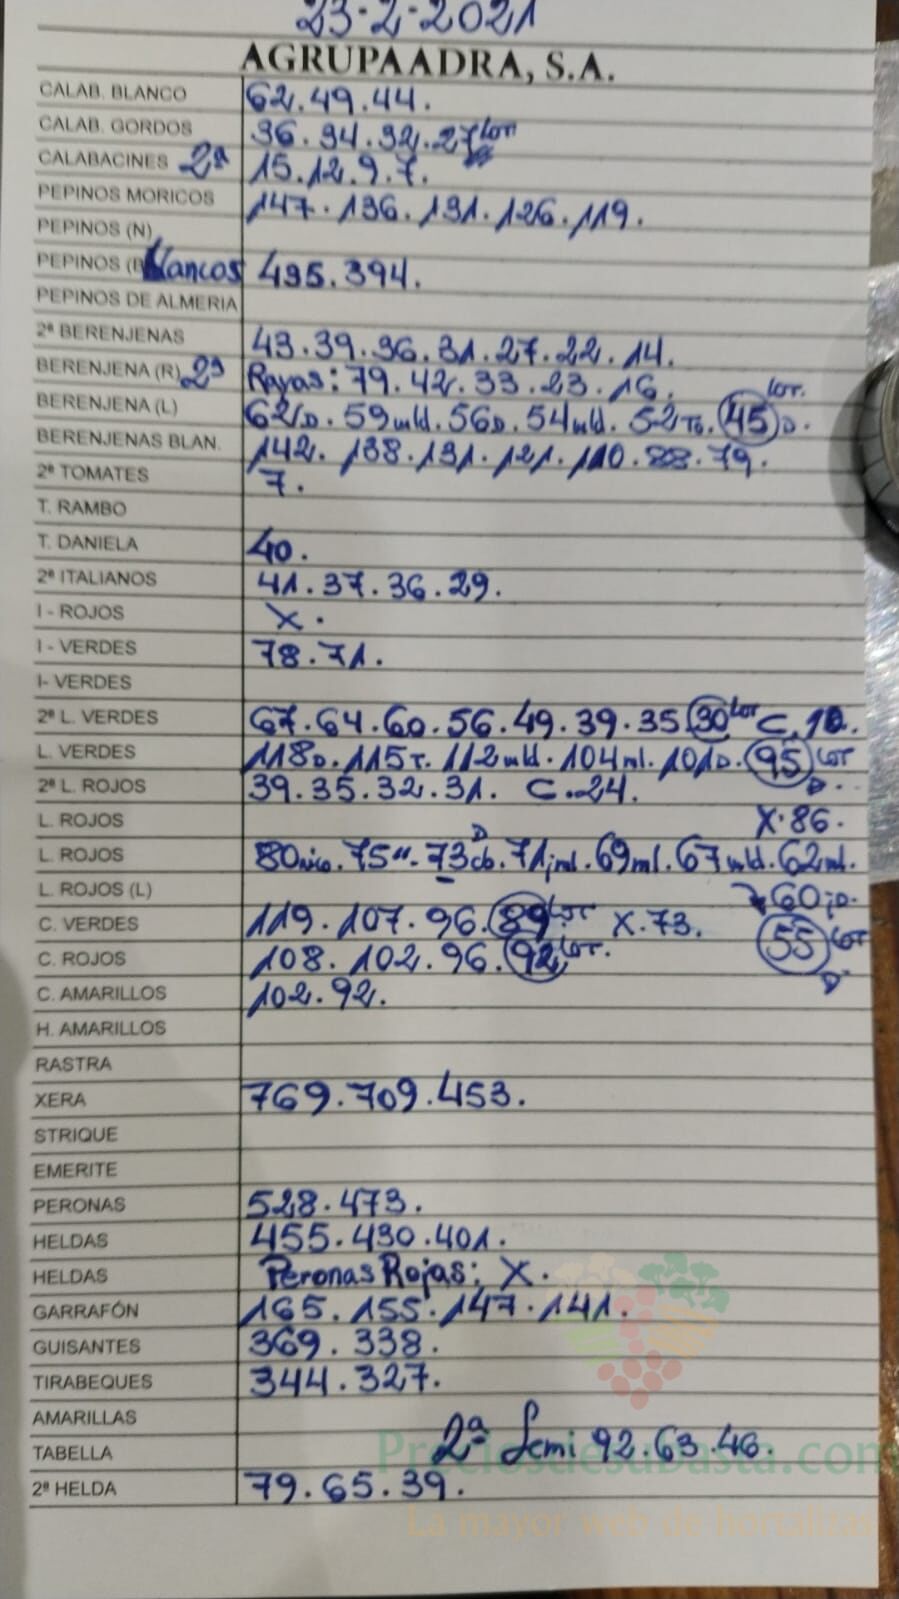 23-2-2021
AGRUPAADRA, S.A.
CALAB. BLANCO 62.49.44.
CALAB. GORDOS 36.34.32.27 Lot
CALABACINES 2ª 15.12.9.7.
PEPINOS MORICOS 147.136.131.126.119.
PEPINOS (N)
PEPINOS (B Blancos 495.394.
PEPINOS DE ALMERIA
2ª BERENJENAS 43.39.36.31.27.22.14.
BERENJENA (R) 2ª Rayas: 79.42.33.23.16.
BERENJENA (L) 62D. 59mld. 56D. 54mld. 52To. 45 D. Lot.
BERENJENAS BLAN. 142.138.131.121.110.88.79.
2ª TOMATES 7.
T. RAMBO
T. DANIELA 40.
2ª ITALIANOS 41.37.36.29.
I - ROJOS X.
I - VERDES 78.71.
I- VERDES
2ª L. VERDES 67.64.60.56.49.39.35 30 Lot C.10.
L. VERDES 118D.115T.112mld.104ml.101D. 95 Lot D.
2ª L. ROJOS 39.35.32.31. C.24.
L. ROJOS X.86.
L. ROJOS 80nico.75".73cb.71jml.69ml.67mld.62ml.
L. ROJOS (L) 60jD.
C. VERDES 119.107.96. 89 Lot X.73. 55 Lot D
C. ROJOS 108.102.96. 92 Lot.
C. AMARILLOS 102.92.
H. AMARILLOS
RASTRA
XERA 769.709.453.
STRIQUE
EMERITE
PERONAS 528.473.
HELDAS 455.430.401.
HELDAS Peronas Rojas: X.
GARRAFÓN 165.155.147.141.
GUISANTES 369.338.
TIRABEQUES 344.327.
AMARILLAS
TABELLA 2ª Semi 92.63.46.
2ª HELDA 79.65.39.
Preciosdesubasta.com
La mayor web de hortalizas